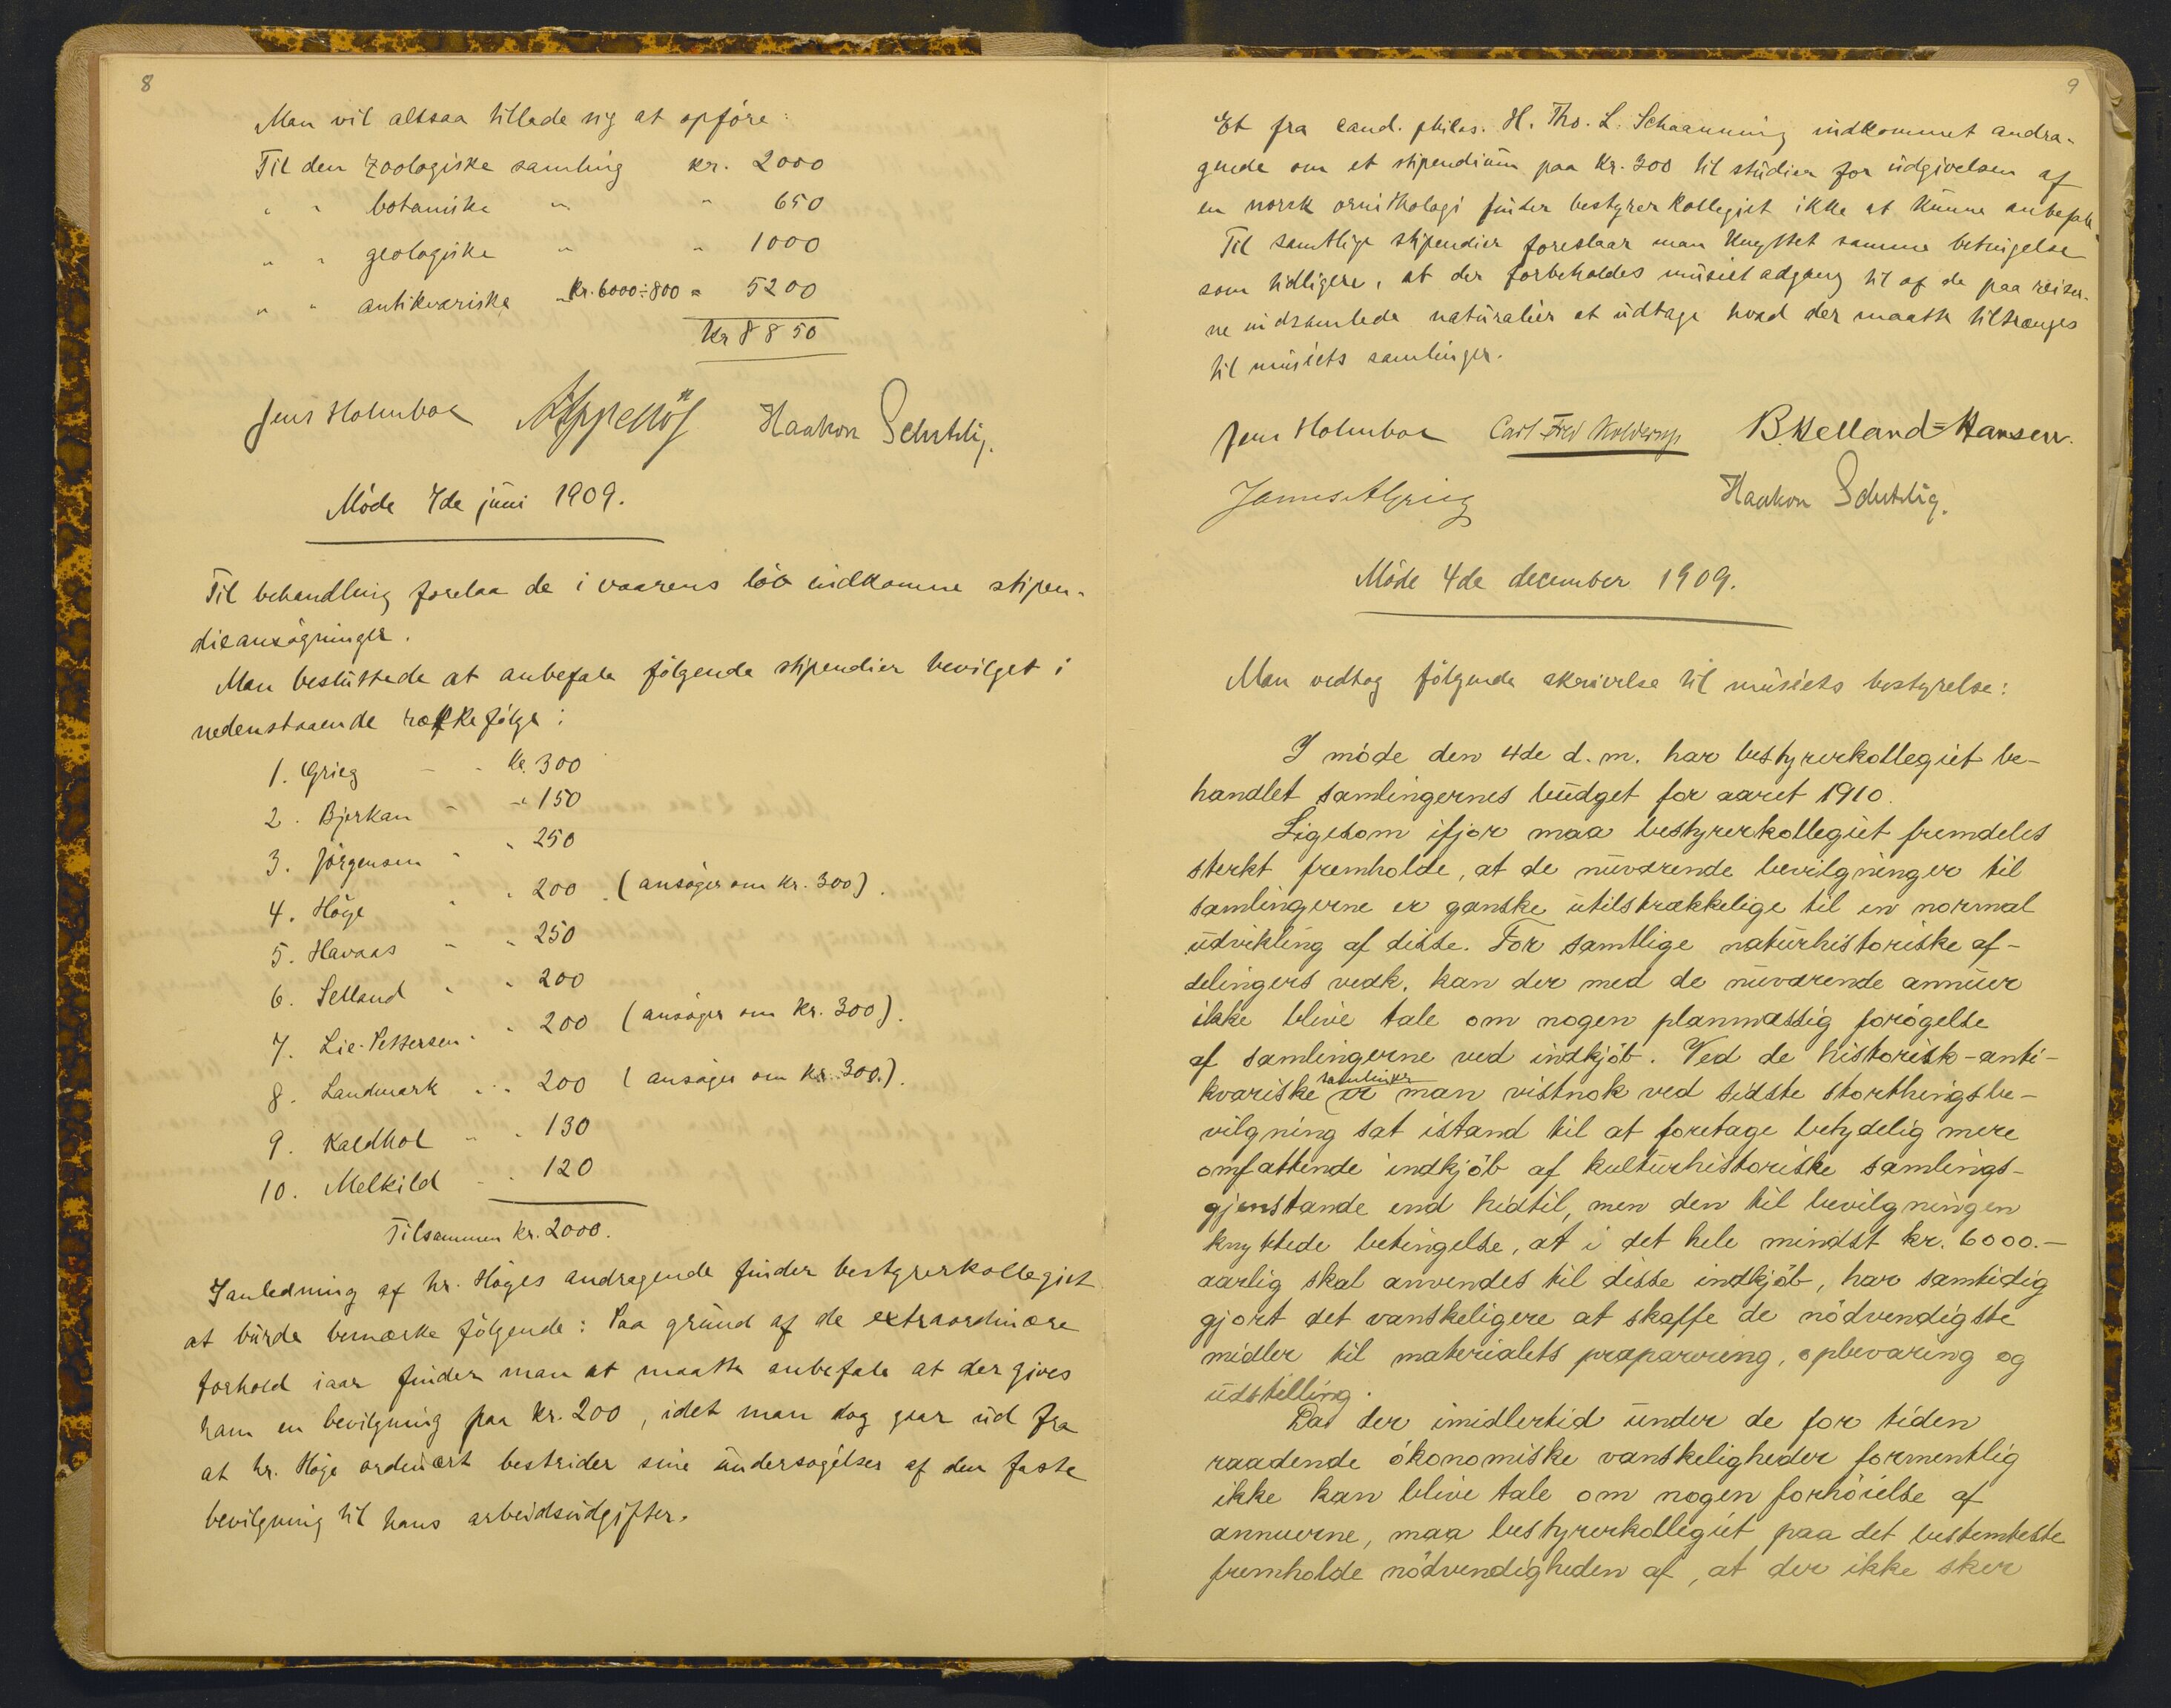 8
Man vil altsaa tillade sig at opføre:
Til den zoologiske samling kr. 2000
" " botaniske " " 650
" " geologiske " " 1000
" " antikvariske " kr. 6000 ÷ 800 = 5200
kr 8850
Jens Holmboe A. Appellöf Haakon Schetelig.
Møde 7de juni 1909.
Til behandling forelaa de i vaarens løb indkomne stipen-
dieansøgninger.
Man besluttede at anbefale følgende stipendier bevilget i
nedenstaaende rækkefølge:
1. Grieg - - kr. 300
2. Bjerkan - " 150
3. Jørgensen " " 250
4. Høye " " 200 (ansøger om kr. 300).
5. Havaas " " 250
6. Selland " " 200
7. Lie-Pettersen " " 200 (ansøger om kr. 300).
8. Landmark " " 200 (ansøger om kr. 300.).
9. Kaldhol " " 130
10. Melkild " " 120
Tilsammen kr. 2000.
I anledning af hr. Høyes andragende finder bestyrerkollegiet
at burde bemærke følgende: Paa grund af de extraordinære
forhold iaar finder man at maatte anbefale at der gives
ham en bevilgning paa kr. 200, idet man dog gaar ud fra
at hr. Høye ordinært bestrider sine undersøgelser af den faste
bevilgning til hans arbeidsudgifter.
9
Et fra cand. philos. H. Tho. L. Schaanning indkommet andra-
gende om et stipendium paa kr. 300 til studier for udgivelsen af
en norsk ornithologi finder bestyrerkollegiet ikke at kunne anbefale.
Til samtlige stipendier foreslaar man knyttet samme betingelse
som tidligere, at der forbeholdes museet adgang til af de paa reiser-
ne indsamlede naturalier at udtage hvad der maatte tiltrænges
til museets samlinger.
Jens Holmboe Carl Fred Kolderup B. Helland-Hansen.
James A Grieg Haakon Schetelig.
Møde 4de december 1909.
Man vedtog følgende skrivelse til museets bestyrelse:
I møde den 4de d. m. har bestyrerkollegiet be-
handlet samlingernes budget for aaret 1910.
Ligesom ifjor maa bestyrerkollegiet fremdeles
sterkt fremholde, at de nuværende bevilgninger til
samlingerne er ganske utilstrækkelige til en normal
udvikling af disse. For samtlige naturhistoriske af-
delingers vedk. kan der med de nuværende annuer
ikke blive tale om nogen planmæssig forøgelse
af samlingerne ved indkjøb. Ved de historisk-anti-
kvariske samlinger er man vistnok ved sidste storthingsbe-
vilgning sat istand til at foretage betydelig mere
omfattende indkjøb af kulturhistoriske samlings-
gjenstande end hidtil, men den til bevilgningen
knyttede betingelse, at i det hele mindst kr. 6000.-
aarlig skal anvendes til disse indkjøb, har samtidig
gjort det vanskeligere at skaffe de nødvendigste
midler til materialets præparering, opbevaring og
udstilling.
Da der imidlertid under de for tiden
raadende økonomiske vanskeligheder formentlig
ikke kan blive tale om nogen forhøielse af
annuerne, maa bestyrerkollegiet paa det bestemteste
fremholde nødvendigheden af, at der ikke sker